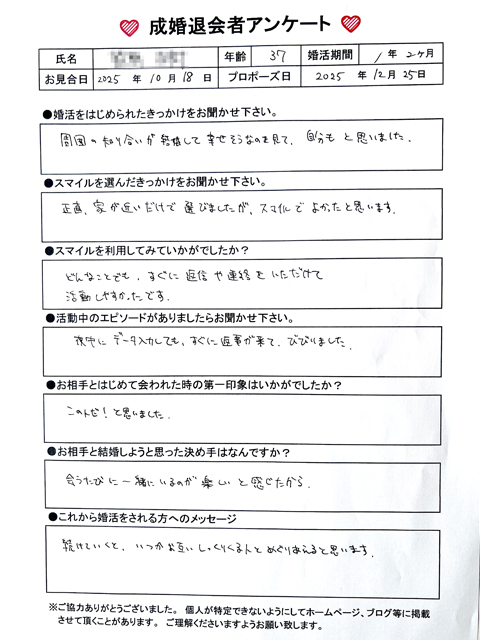 成婚退会者アンケート
氏名 年齢 37 婚活期間 1年2ヶ月
お見合日 2025年10月18日 プロポーズ日 2025年12月25日
●婚活をはじめられたきっかけをお聞かせ下さい。
周囲の知り合いが結婚して幸せそうなのを見て、自分もと思いました。
●スマイルを選んだきっかけをお聞かせ下さい。
正直、家が近いだけで選びましたが、スマイルでよかったと思います。
●スマイルを利用してみていかがでしたか？
どんなことでも、すぐに返信や連絡をいただけて
活動しやすかったです。
●活動中のエピソードがありましたらお聞かせ下さい。
夜中にデータ入力しても、すぐに返事が来て、びびりました。
●お相手とはじめて会われた時の第一印象はいかがでしたか？
この人だ！と思いました。
●お相手と結婚しようと思った決め手はなんですか？
会うたびに一緒にいるのが楽しいと感じたから。
●これから婚活をされる方へのメッセージ
続けていくと、いつかお互いしっくりくる人とめぐりあえると思います。
※ご協力ありがとうございました。 個人が特定できないようにしてホームページ、ブログ等に掲載
させて頂くことがあります。 ご理解くださいますようお願い致します。